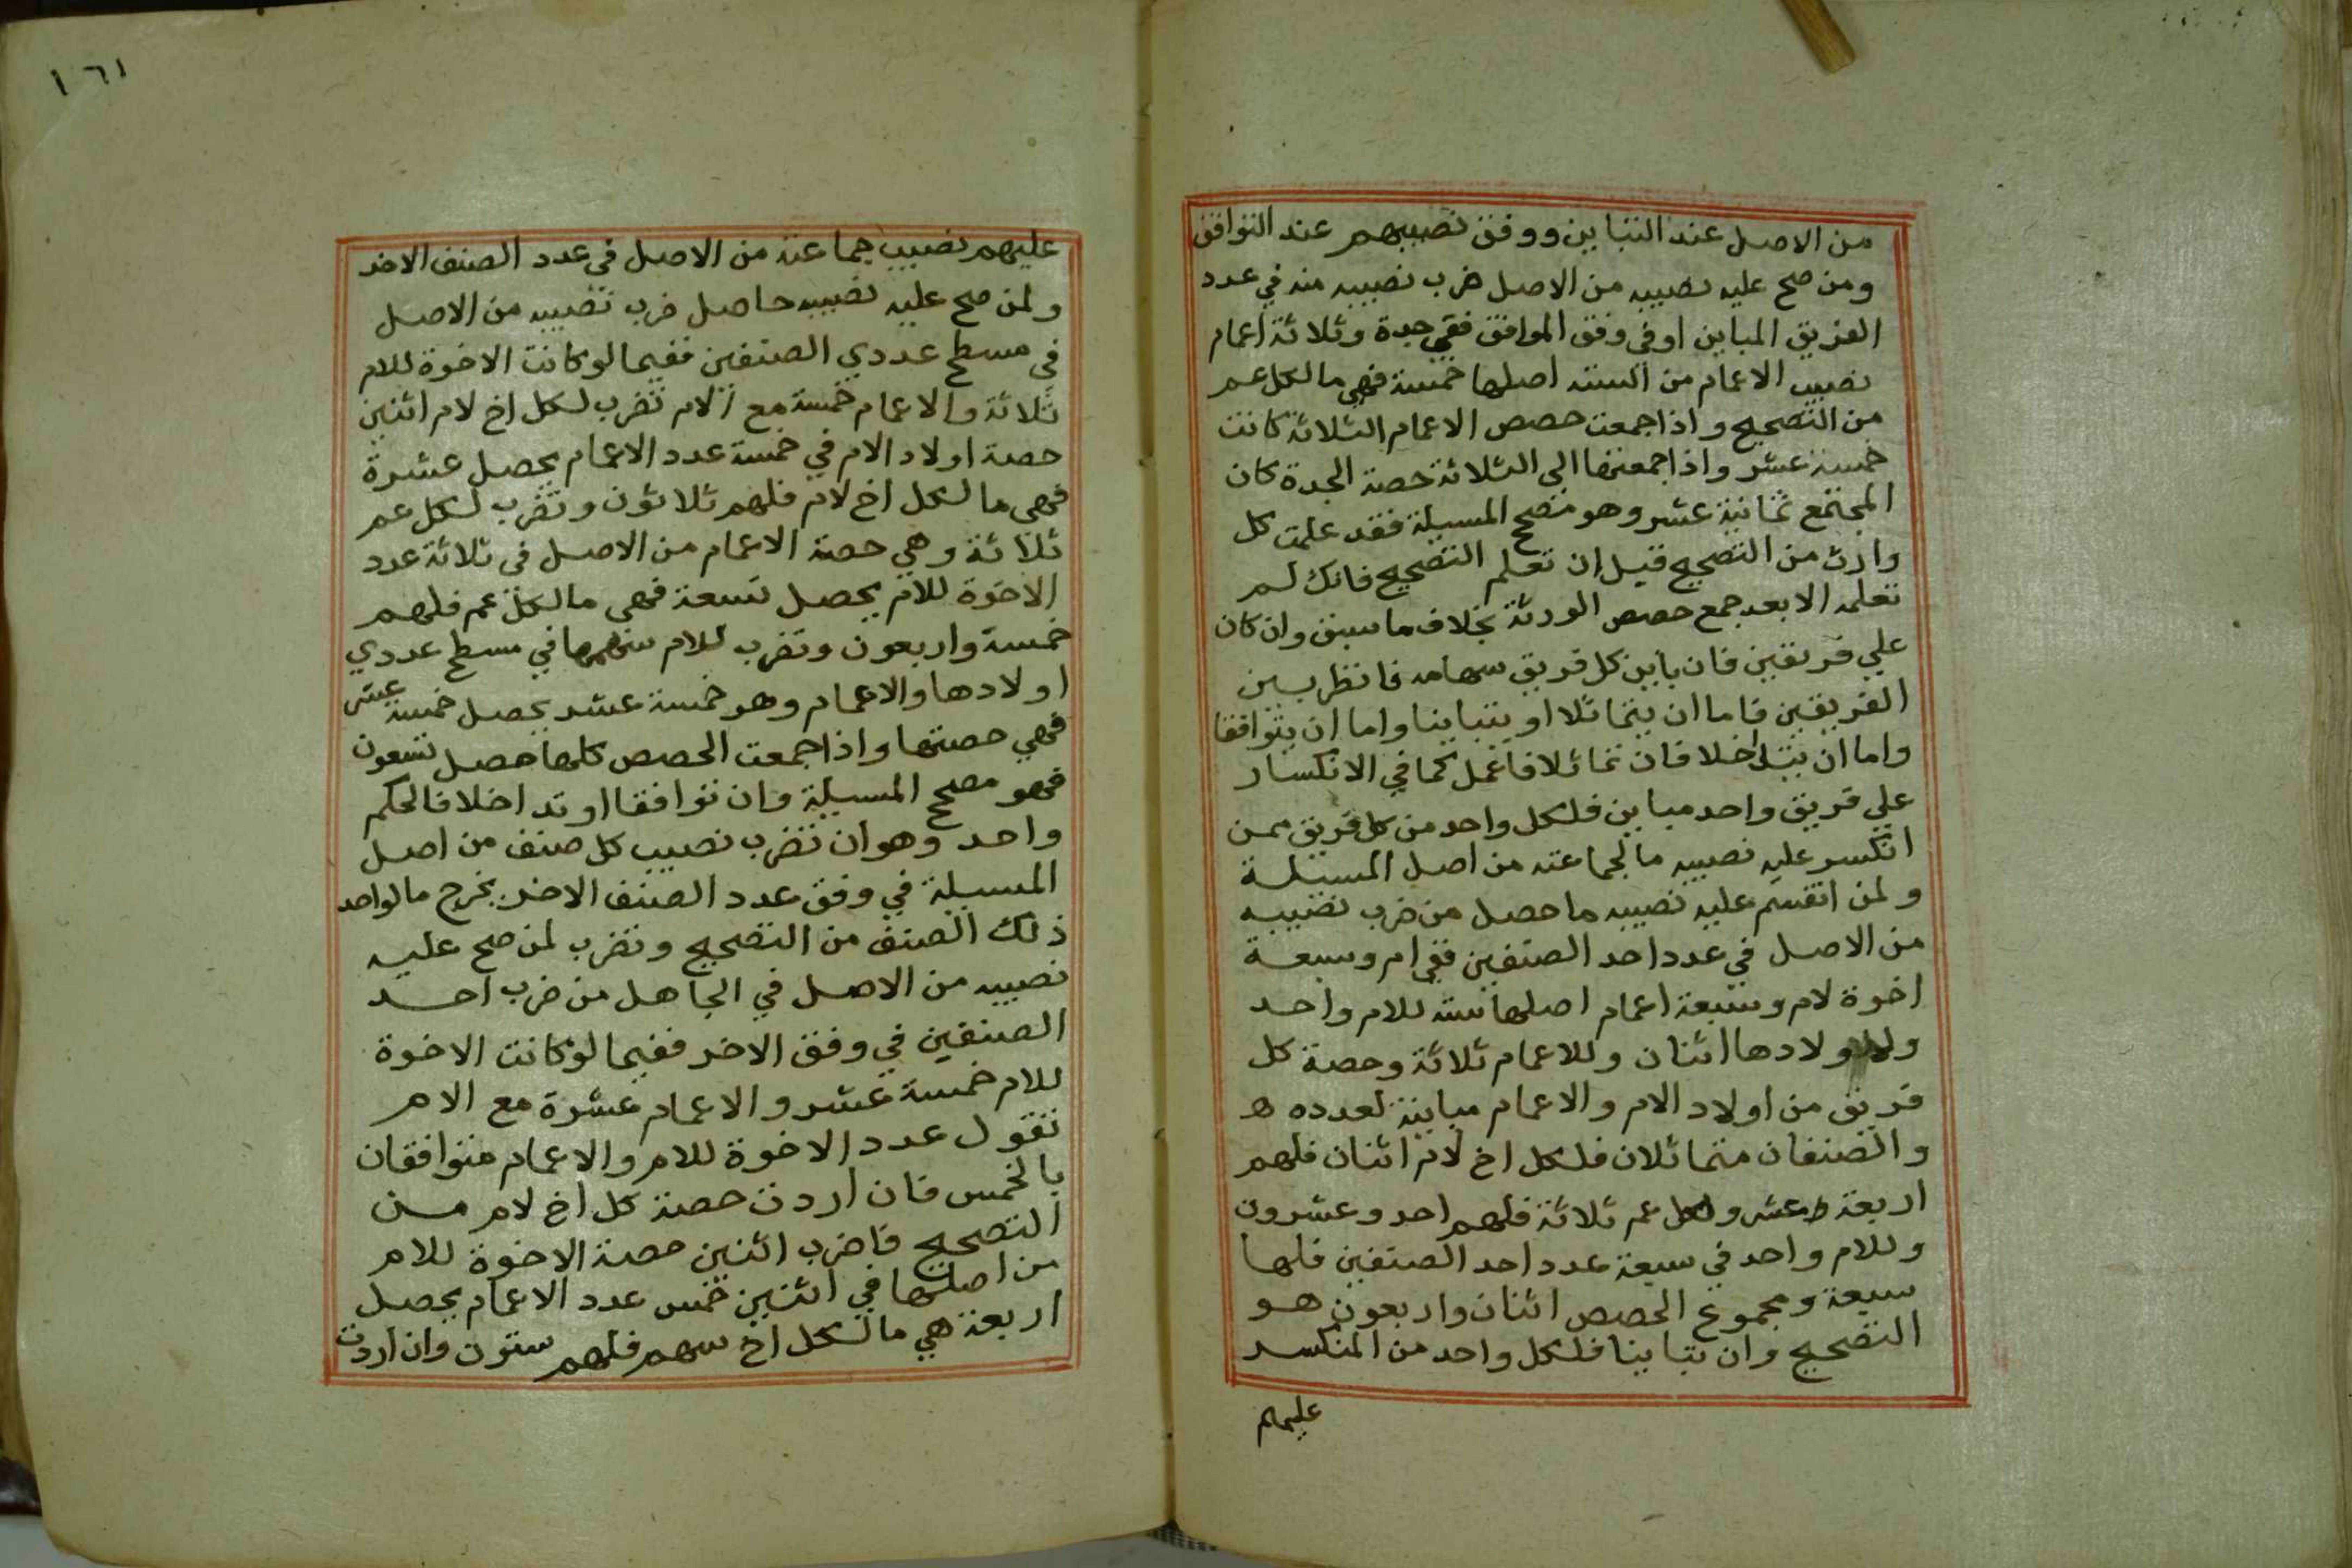 من الاصل عند التباين ووفق نصيبهم عند التوافق
ومن صح عليه نصيبه من الاصل ضرب نصيبه منه في عدد
الفريق المباين او في وفق الموافق ففي جدة وثلاثة اعمام
نصيب الاعمام من الستة اصلها خمسة فهي ما لكل عم
من التصحيح واذا جمعت حصص الاعمام الثلاثة كانت
خمسة عشر واذا جمعتها الى الثلاثة حصة الجدة كان
المجتمع ثمانية عشر وهو مصحح المسيلة فقد علمت كل
وارث من التصحيح قبل ان تعلم التصحيح فانك لم
تعلمه الا بعد جمع حصص الورثة بخلاف ما سبق وان كان
علي فريقين فان باين كل فريق سهامه فانظر بين
الفريقين فاما ان يتماثلا او يتباينا واما ان يتوافقا
واما ان يتداخلا فان تماثلا فاعمل كما في الانكسار
علي فريق واحد مباين فلكل واحد من كل فريق ممن
انكسر عليه نصيبه ما لجماعته من اصل المسئلة
ولمن انقسم عليه نصيبه ما حصل من ضرب نصيبه
من الاصل في عدد احد الصنفين ففي ام وسبعة
اخوة لام وسبعة اعمام اصلها ستة للام واحد
ولاولادها اثنان وللاعمام ثلاثة وحصة كل
فريق من اولاد الام والاعمام مباينة لعدده ه
والصنفان متماثلان فلكل اخ لام اثنان فلهم
اربعة عشر ولكل عم ثلاثة فلهم احد وعشرون
وللام واحد في سبعة عدد احد الصنفين فلها
سبعة ومجموع الحصص اثنان واربعون هو
التصحيح وان تباينا فلكل واحد من المنكسر
عليهم
١٦١
عليهم نصيب جماعته من الاصل في عدد الصنف الاخر
ولمن صح عليه نصيبه حاصل ضرب نصيبه من الاصل
في مسطح عددي الصنفين ففيما لو كانت الاخوة للام
ثلاثة والاعمام خمسة مع الام تضرب لكل اخ لام اثنين
حصة اولاد الام في خمسة عدد الاعمام يحصل عشرة
فهي ما لكل اخ لام فلهم ثلاثون وتضرب لكل عم
ثلاثة وهي حصة الاعمام من الاصل في ثلاثة عدد
الاخوة للام يحصل تسعة فهي ما لكل عم فلهم
خمسة واربعون وتضرب للام سهمها في مسطح عددي
اولادها والاعمام وهو خمسة عشر يحصل خمسة عشر
فهي حصتها واذا جمعت الحصص كلها حصل تسعون
فهو مصحح المسيلة وان توافقا او تداخلا فالحكم
واحد وهو ان تضرب نصيب كل صنف من اصل
المسيلة في وفق عدد الصنف الاخر يخرج ما لواحد
ذلك الصنف من التصحيح وتضرب لمن صح عليه
نصيبه من الاصل في الحاصل من ضرب احد
الصنفين في وفق الاخر ففيما لو كانت الاخوة
للام خمسة عشر والاعمام عشرة مع الام
نقول عدد الاخوة للام والاعمام متوافقان
بالخمس فان اردت حصة كل اخ لام من
التصحيح فاضرب اثنين حصة الاخوة للام
من اصلها في اثنين خمس عدد الاعمام يحصل
اربعة هي ما لكل اخ سهم فلهم ستون وان اردت